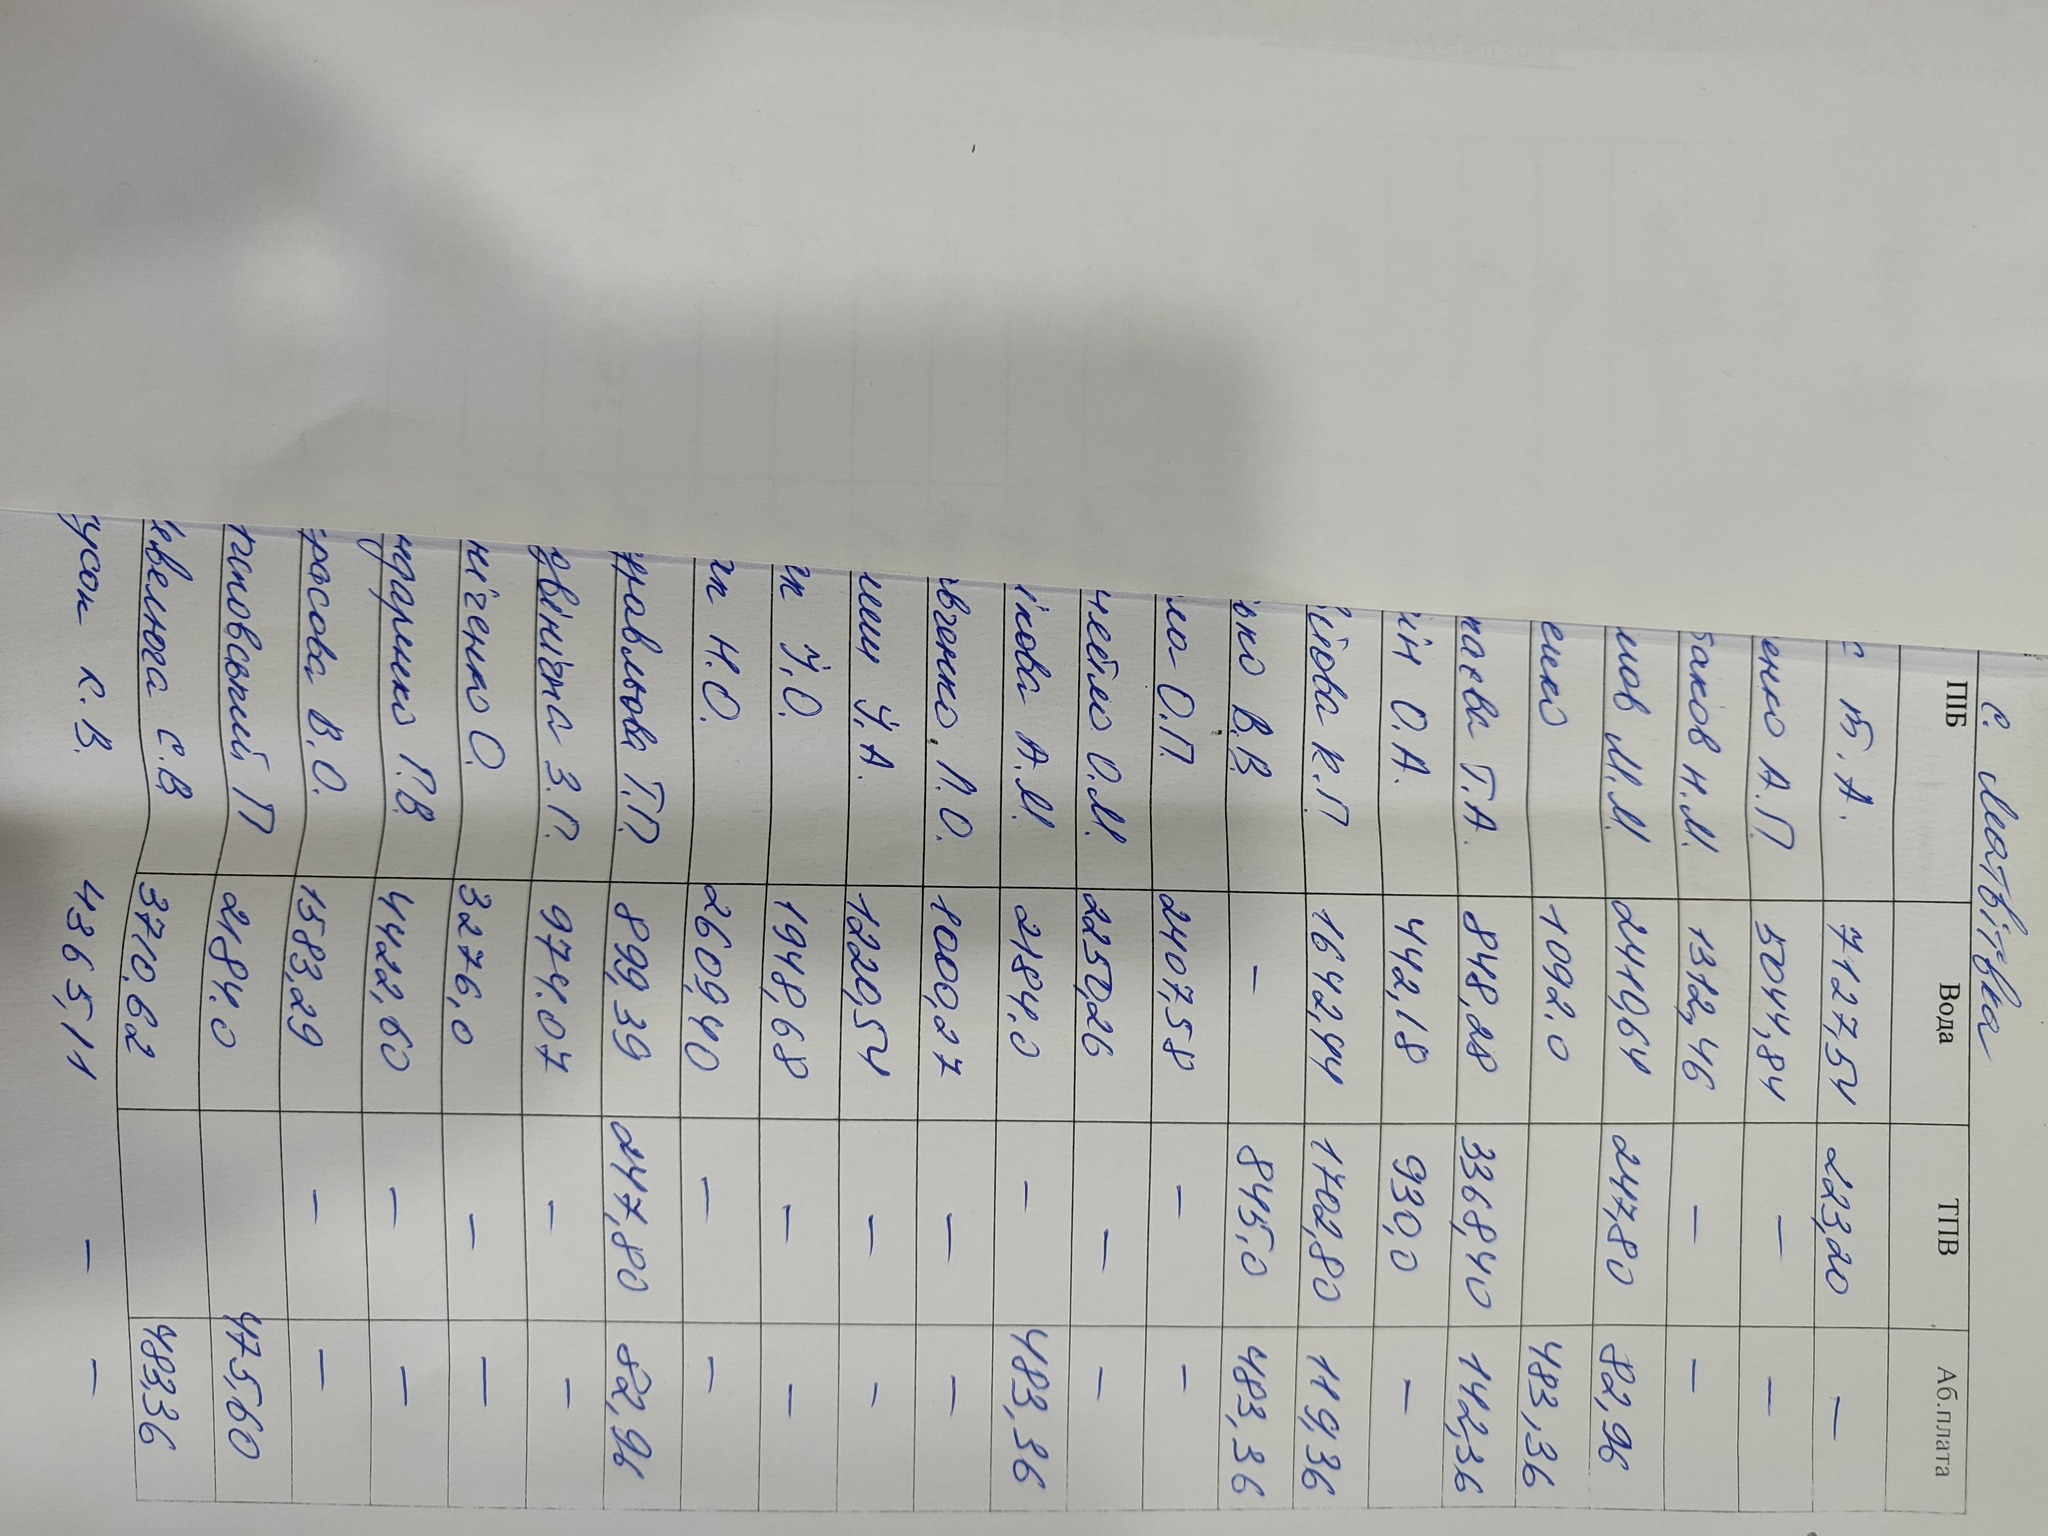 с. Матвіївка
ПІБ Вода ТПВ Аб.плата
Б. А. 7127,54 223,20 —
енко А.П. 5044,84 — —
баков Н.М. 1312,46 — —
мов М.М. 2410,64 247,80 82,96
енко 1092.0 483,36
каєва Т.А. 848,28 3368,40 142,36
ін О.А. 442,18 930,0 —
ітова К.П. 1642,94 1702,80 119,36
ько В.В. — 845,0 483,36
ла О.П. 2407,58 — —
нейло О.М. 2250,26 — —
ікова А.М. 2184.0 — 483,36
вченко Л.О. 1000,27 — —
У.А. 1220,54 — —
У.О. 1948,68 — —
Н.О. 2609,40 — —
равльова Т.П. 899,39 247,80 82,96
З.П. 974.07 — —
ніченко О. 3276,0 — —
Г.В. 4422,60 — —
расова В.О. 1583,29 — —
П 2184.0 475,60
евелюга С.В 3710,62 483,36
усон К.В. 4365,11 — —